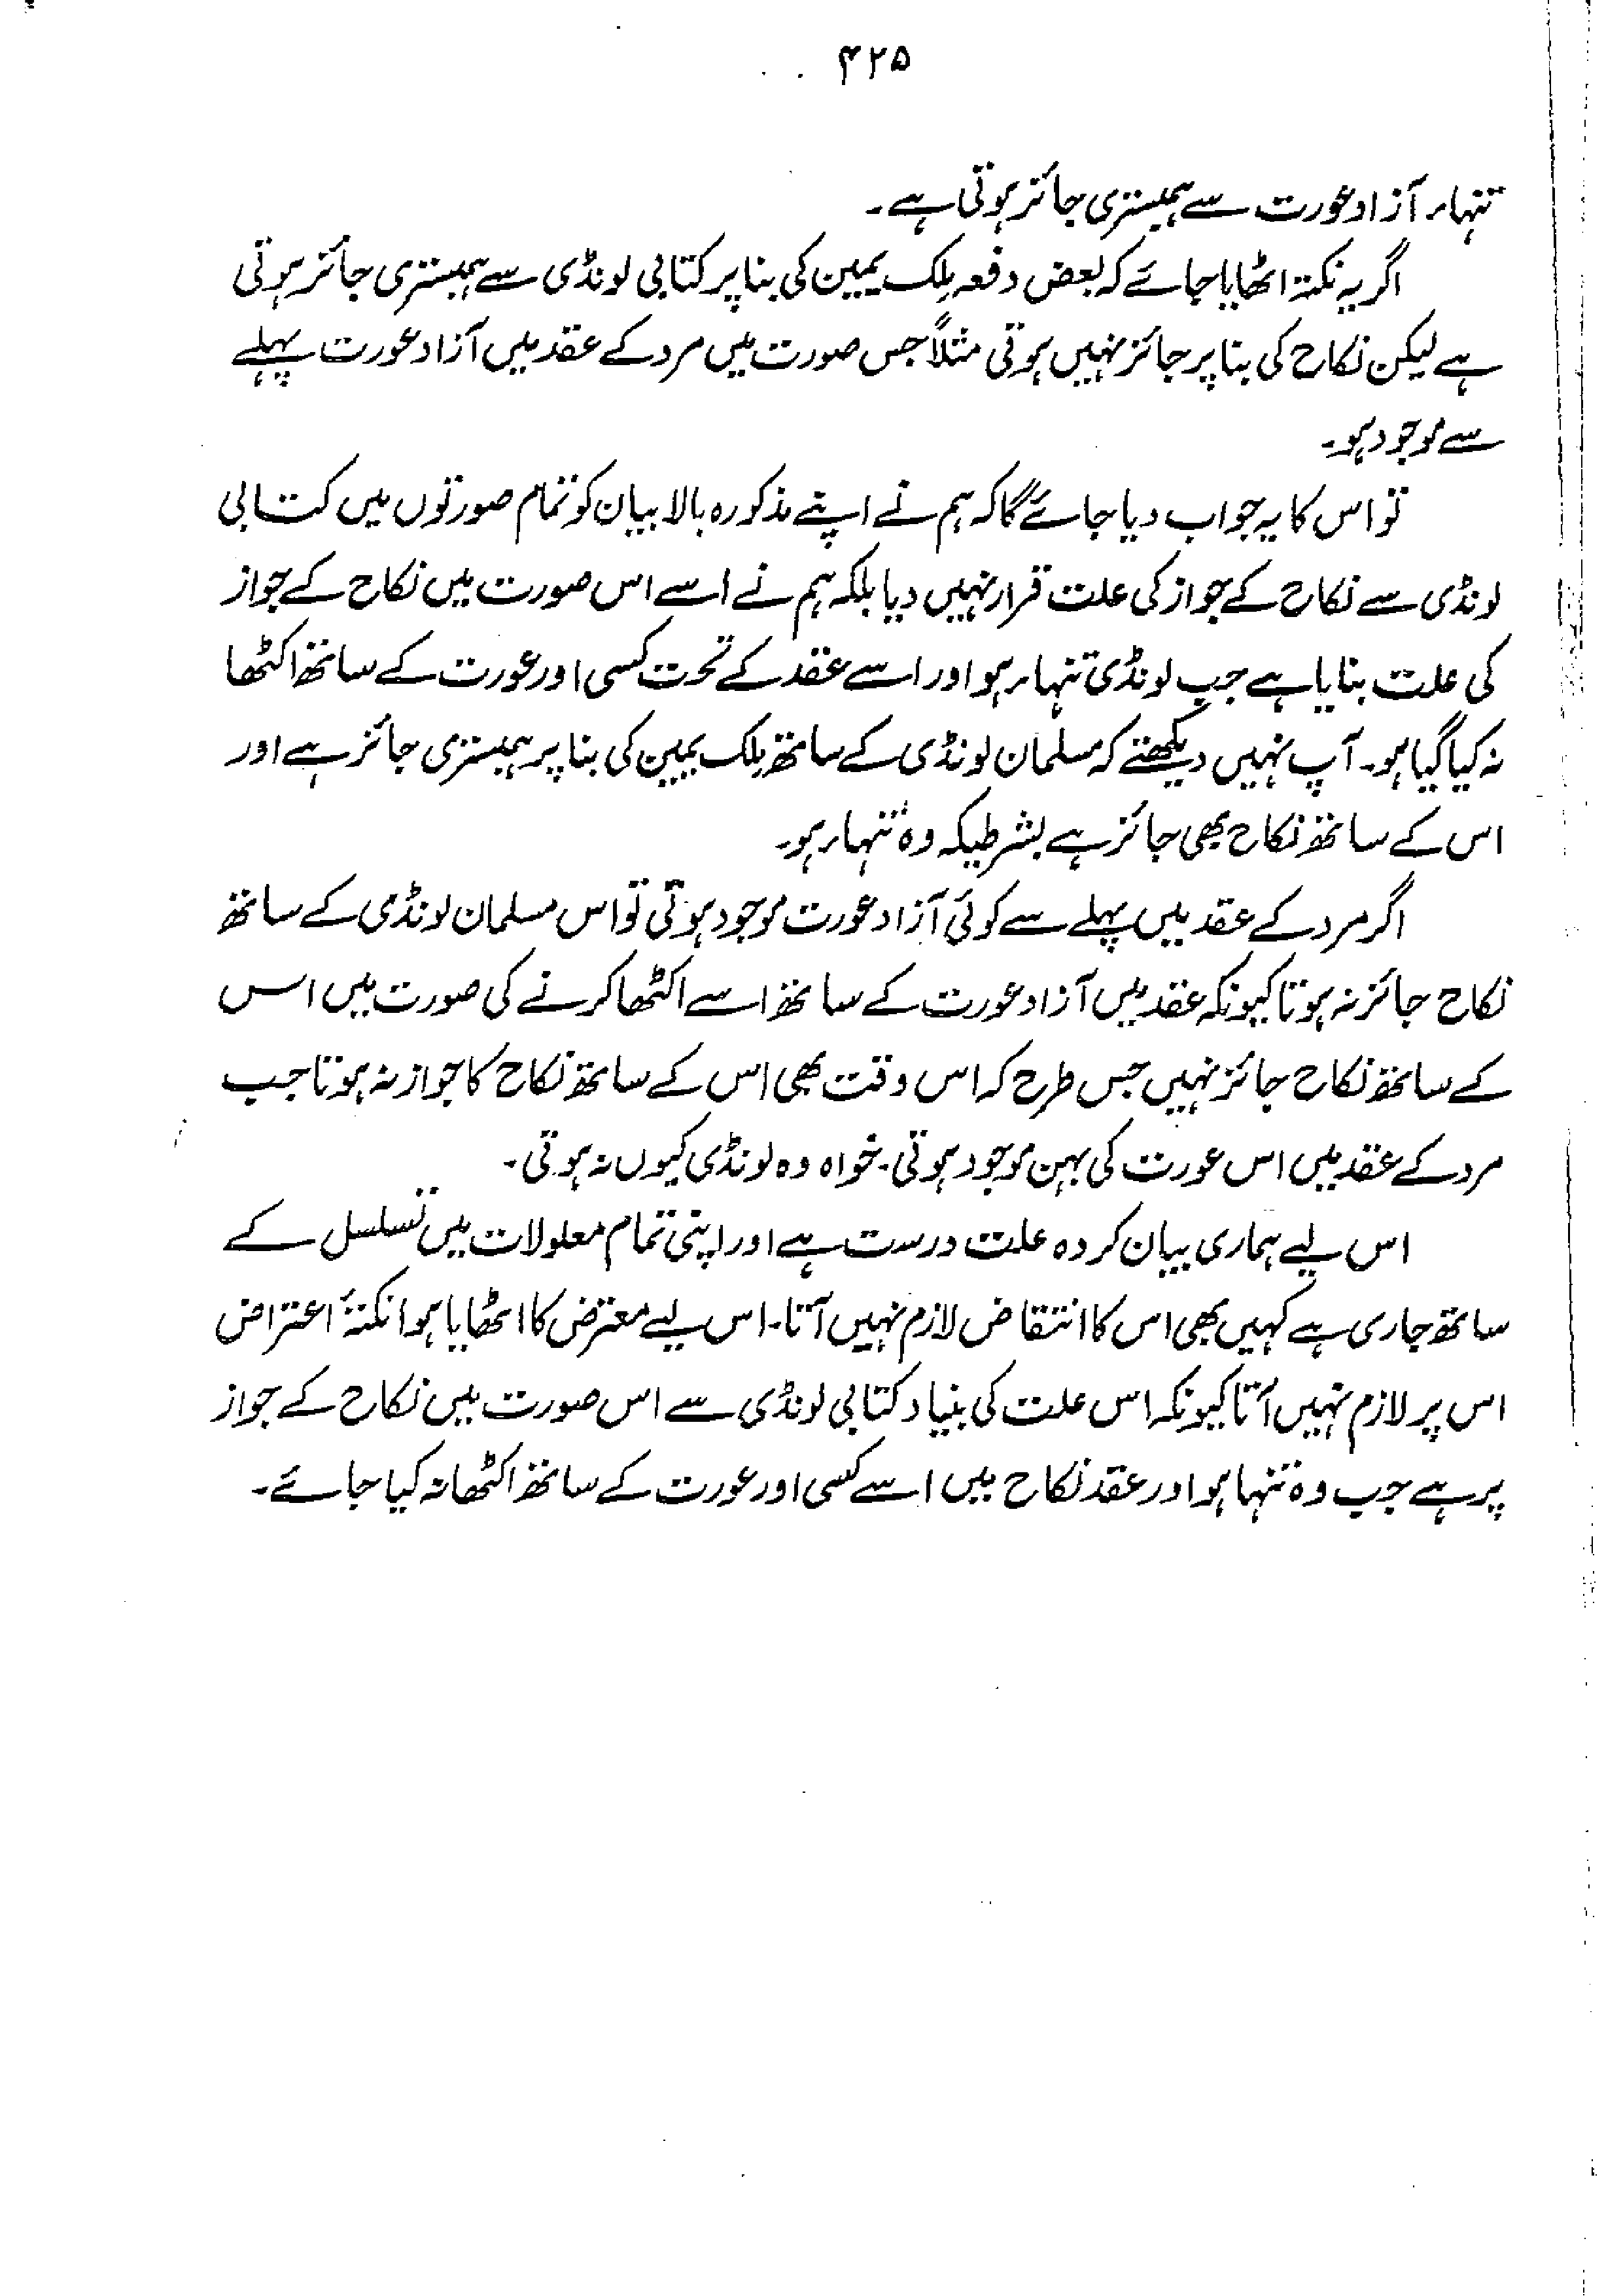 ۴۲۵
تنہاء آزاد عورت سے ہمبستری جائز ہوتی ہے۔
اگر یہ نکتہ اٹھایا جائے کہ بعض دفعہ مِلک یمین کی بنا پر کتابی لونڈی سے ہمبستری جائز ہوتی
ہے لیکن نکاح کی بنا پر جائز نہیں ہوتی مثلاً جس صورت میں مرد کے عقد میں آزاد عورت پہلے
سے موجود ہو۔
تو اس کا یہ جواب دیا جائے گا کہ ہم نے اپنے مذکورہ بالا بیان کو تمام صورتوں میں کتابی
لونڈی سے نکاح کے جواز کی علت قرار نہیں دیا بلکہ ہم نے اسے اس صورت میں نکاح کے جواز
کی علت بنایا ہے جب لونڈی تنہاء ہو اور اسے عقد کے تحت کسی اور عورت کے ساتھ اکٹھا
نہ کیا گیا ہو۔ آپ نہیں دیکھتے کہ مسلمان لونڈی کے ساتھ مِلک یمین کی بنا پر ہمبستری جائز ہے اور
اس کے ساتھ نکاح بھی جائز ہے بشرطیکہ وہ تنہاء ہو۔
اگر مرد کے عقد میں پہلے سے کوئی آزاد عورت موجود ہوتی تو اس مسلمان لونڈی کے ساتھ
نکاح جائز نہ ہوتا کیونکہ عقد میں آزاد عورت کے ساتھ اسے اکٹھا کرنے کی صورت میں اس
کے ساتھ نکاح جائز نہیں جس طرح کہ اس وقت بھی اس کے ساتھ نکاح کا جواز نہ ہوتا جب
مرد کے عقد میں اس عورت کی بہن موجود ہوتی۔ خواہ وہ لونڈی کیوں نہ ہوتی۔
اس لیے ہماری بیان کردہ علت درست ہے اور اپنی تمام معلولات میں تسلسل کے
ساتھ جاری ہے کہیں بھی اس کا انتقاض لازم نہیں آتا۔ اس لیے معترض کا اٹھایا ہوا نکتۂ اعتراض
اس پر لازم نہیں آتا کیونکہ اس علت کی بنیاد کتابی لونڈی سے اس صورت میں نکاح کے جواز
پر ہے جب وہ تنہا ہو اور عقد نکاح میں اسے کسی اور عورت کے ساتھ اکٹھا نہ کیا جائے۔